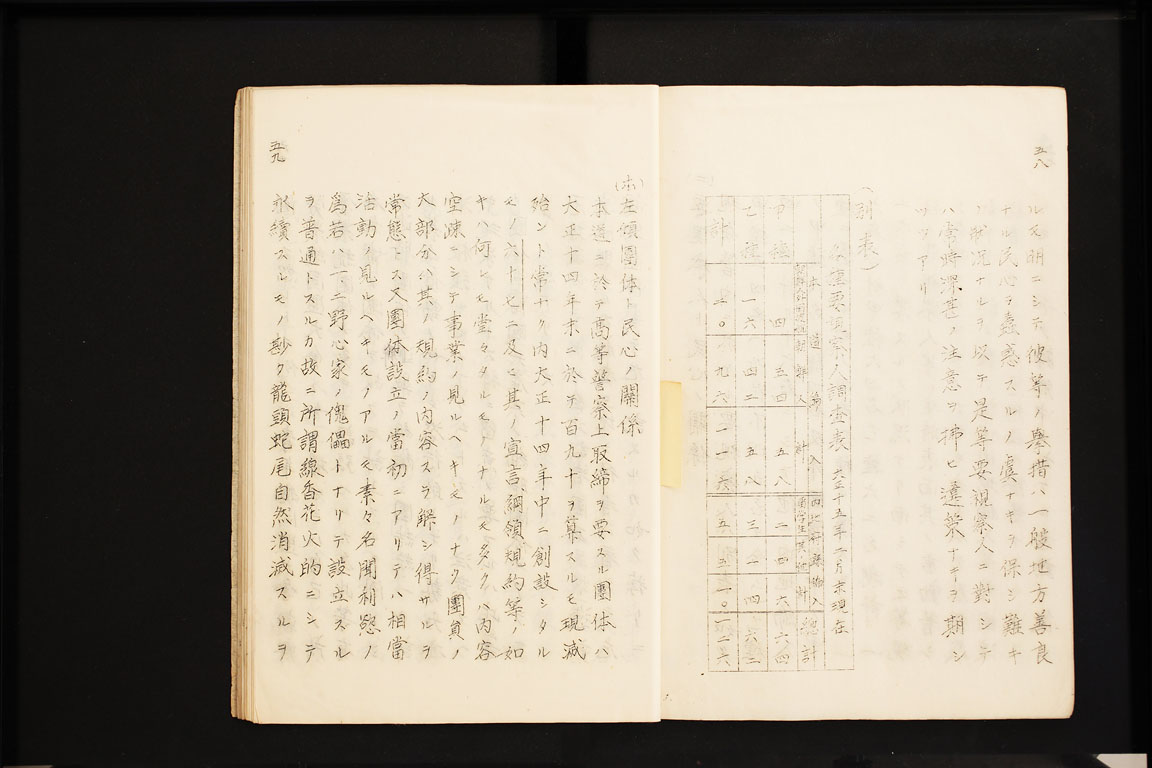 五八
ルヌ明ニシテ彼等ノ擧措ハ一般地方善良
ナル民心ヲ蠱惑スルノ虞ナキヲ保シ難キ
ノ狀況ナルヲ以テ是等要視察人ニ對シテ
ハ常時深甚ノ注意ヲ拂ヒ遺策ナキヲ期シ
ツヽアリ
(別表)
要視察人調査表 大正十五年二月末現在
本道編入
四止府縣編入
計
留学生
其他
計
總計
甲種 四 五四 五八 二 四 六 六四
乙種 一六 四二 五八 三 一 四 六二
計 二〇 九六 一一六 五 五 一〇 一二六
五九
(ホ)左傾團体ト民心ノ關係
本道ニ於テ高等警察上取締ヲ要スル團体ハ
大正十四年末ニ於テ百九十ヲ算スルモ現減
殆ント常ナク内大正十四年中ニ創設シタル
モノ六十七ニ及ヒ其ノ宣言、綱領規約等ノ如
キハ何レモ堂々タルモノナルモ多クハ内容
空疎ニシテ事業ノ見ルヘキモノナク團員ノ
大部分ハ其ノ規約ノ内容スラ解シ得サルヲ
常態トス又團体設立ノ當初ニアリテハ相當
活動ノ見ルヘキモノアルモ素々名聞利慾ノ
爲若ハ一、二野心家ノ傀儡トナリテ設立スル
ヲ普通トスルカ故ニ所謂線香花火的ニシテ
永續スルモノ尠ク龍頭蛇尾自然消滅スルヲ